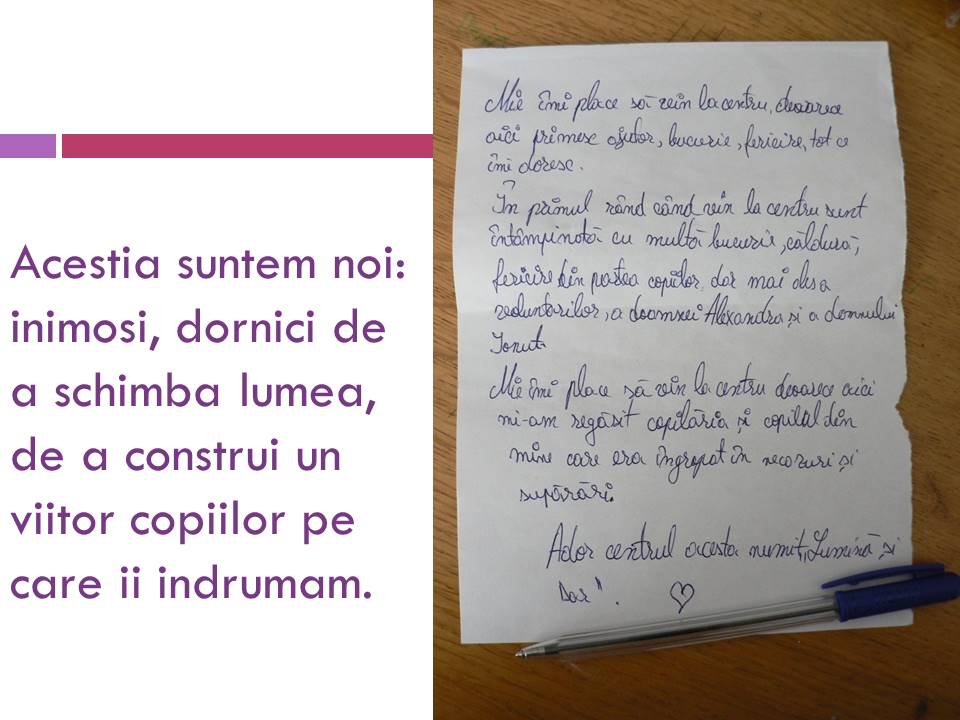 Acestia suntem noi:
inimosi, dornici de
a schimba lumea,
de a construi un
viitor copiilor pe
care ii indrumam.
Mie îmi place să vin la centru, deoarece
aici primesc ajutor, bucurie, fericire, tot ce
îmi doresc.
În primul rând când vin la centru sunt
întâmpinată cu multă bucurie, căldură,
fericire din partea copiilor, dar mai des a
voluntarilor, a doamnei Alexandra și a domnului
Ionuț.
Mie îmi place să vin la centru deoarece aici
mi-am regăsit copilăria și copilul din
mine care era îngropat în necazuri și
supărări.
Ador centrul acesta numit „Lumină și
Dar".